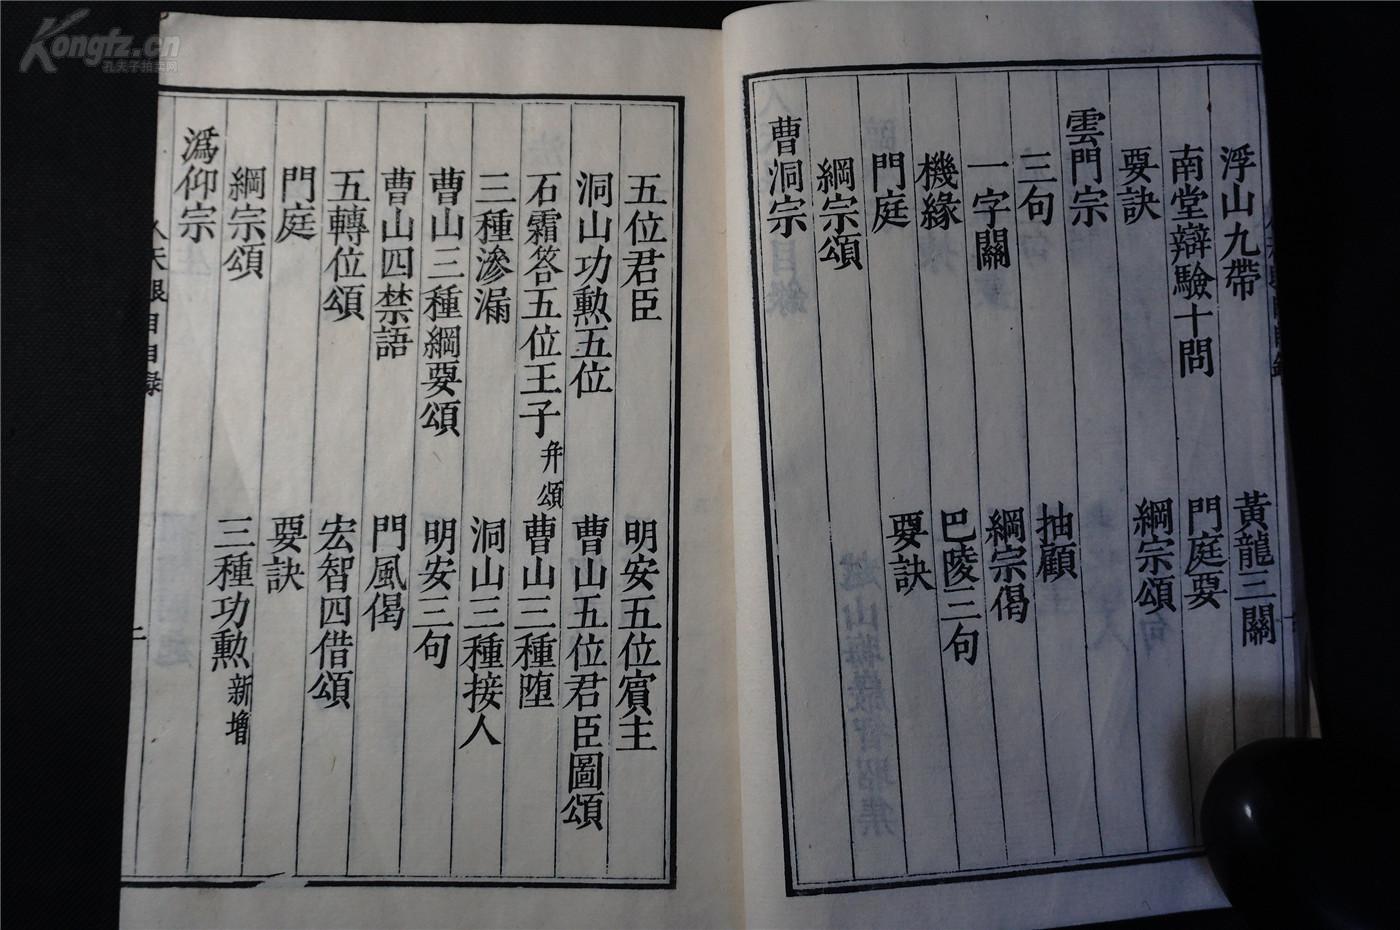 浮山九帶 黃龍三關
南堂辯驗十問 門庭要
要訣 綱宗頌
雲門宗
三句 抽顧
一字關 綱宗偈
機緣 巴陵三句
門庭 要訣
綱宗頌
曹洞宗
五位君臣 明安五位賓主
洞山功勲五位 曹山五位君臣圖頌
石霜答五位王子 并頌 曹山三種堕
三種滲漏 洞山三種接人
曹山三種綱要頌 明安三句
曹山四禁語 門風偈
五轉位頌 宏智四借頌
門庭 要訣
綱宗頌 三種功勲 新增
溈仰宗
人天眼目目録
二
Kongfz.cn
孔夫子拍卖网